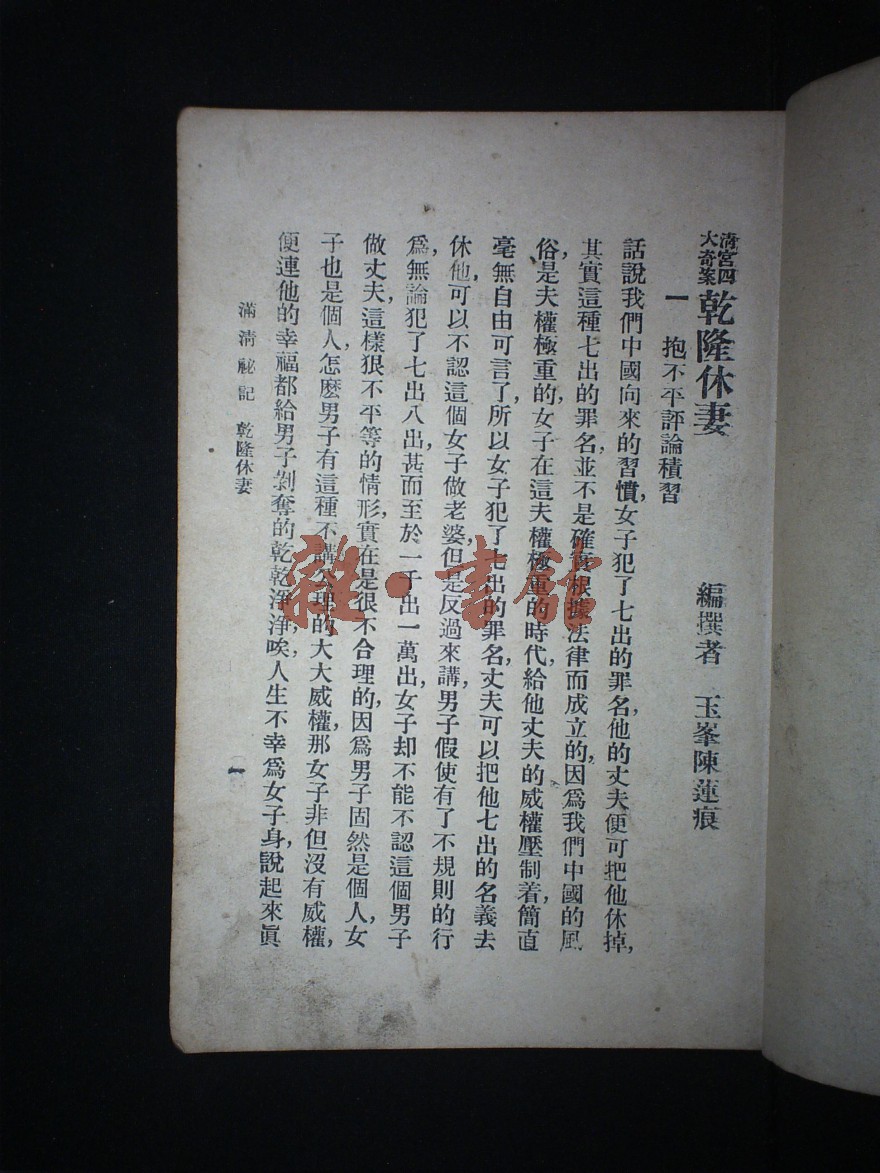 清宮四大奇案 乾隆休妻
編撰者 玉峯陳蓮痕
一 抱不平評論積習
話說我們中國向來的習慣,女子犯了七出的罪名,他的丈夫便可把他休掉,
其實這種七出的罪名,並不是確實根據法律而成立的,因爲我們中國的風
俗,是夫權極重的,女子在這夫權極重的時代,給他丈夫的威權壓制着,簡直
毫無自由可言了,所以女子犯了七出的罪名,丈夫可以把他七出的名義去
休他,可以不認這個女子做老婆,但是反過來講,男子假使有了不規則的行
爲,無論犯了七出八出,甚而至於一千出一萬出,女子却不能不認這個男子
做丈夫,這樣狠不平等的情形,實在是很不合理的,因爲男子固然是個人,女
子也是個人,怎麽男子有這種不講公理的大大威權,那女子非但沒有威權,
便連他的幸福都給男子剝奪的乾乾淨淨,唉,人生不幸爲女子身,說起來眞
滿清祕記 乾隆休妻
一
雜·書館